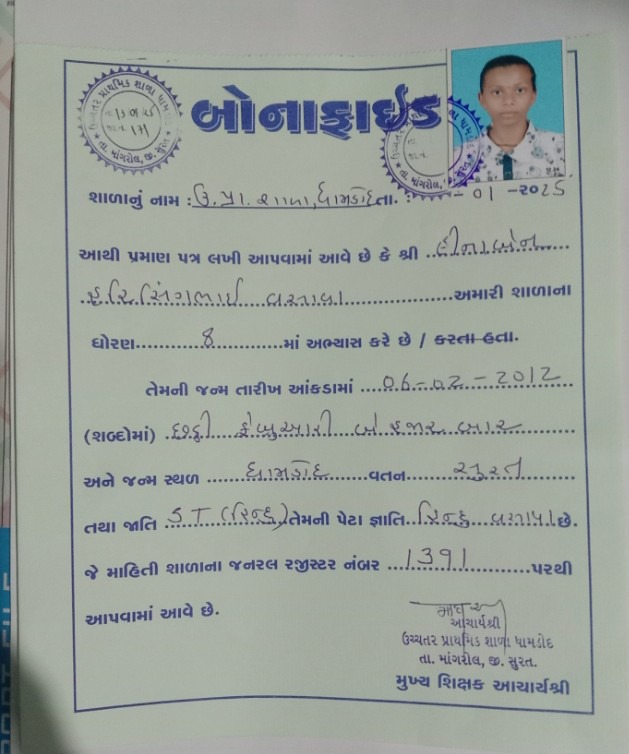 બોનાફાઇડ
ઉચ્ચતર પ્રાથમિક શાળા ધામડોદ
તા. માંગરોલ, જી. સુરત
શાળાનું નામ : ઉ.પ્રા. શાળા, ધામડોદ તા. : -01-૨૦૨૫
આથી પ્રમાણ પત્ર લખી આપવામાં આવે છે કે શ્રી હીનાબેન
હરિસિંગભાઇ વસાવા અમારી શાળાના
ધોરણ 8 માં અભ્યાસ કરે છે / કરતા હતા.
તેમની જન્મ તારીખ આંકડામાં 06-02-2012
(શબ્દોમાં) છઠ્ઠી ફેબ્રુઆરી બે હજાર બાર
અને જન્મ સ્થળ ધામડોદ વતન સુરત
તથા જાતિ ST (હિન્દુ) તેમની પેટા જ્ઞાતિ હિન્દુ વસાવા છે.
જે માહિતી શાળાના જનરલ રજીસ્ટર નંબર 1391 પરથી
આપવામાં આવે છે.
આચાર્યશ્રી
ઉચ્ચતર પ્રાથમિક શાળા ધામડોદ
તા. માંગરોલ, જી. સુરત.
મુખ્ય શિક્ષક આચાર્યશ્રી